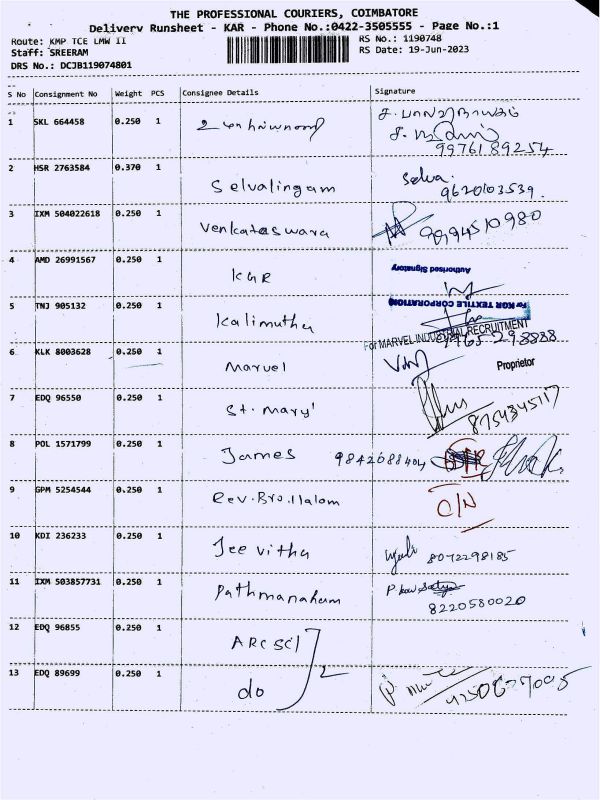 THE PROFESSIONAL COURIERS, COIMBATORE
Delivery Runsheet - KAR - Phone No.:0422-3505555 - Page No.:1
Route: KMP TCE LMW II
RS No.: 1190748
Staff: SREERAM
RS Date: 19-Jun-2023
DRS No.: DCJB119074801
S No Consignment No Weight PCS Consignee Details Signature
1 SKL 664458 0.250 1
99761 89254
2 HSR 2763584 0.370 1 Selvalingam Selva. 9620103539.
3 IXM 504022618 0.250 1 Venkateswara 9994510980
4 AMD 26991567 0.250 1 KGR
Authorised Signatory
For KGR TEXTILE CORPORATION
5 TNJ 905132 0.250 1 Kalimuthu
For MARVEL INDUSTRIAL RECRUITMENT
6 KLK 8003628 0.250 1 Marvel
Proprietor
7 EDQ 96550 0.250 1 St. Mary' 8754345717
8 POL 1571799 0.250 1 James 9842088404
9 GPM 5254544 0.250 1 Rev. Bro. O/N
10 KDI 236233 0.250 1 Jeevitha 8072298185
11 IXM 503857731 0.250 1 Pathmanabam
8220580020
12 EDQ 96855 0.250 1
13 EDQ 89699 0.250 1 do 2